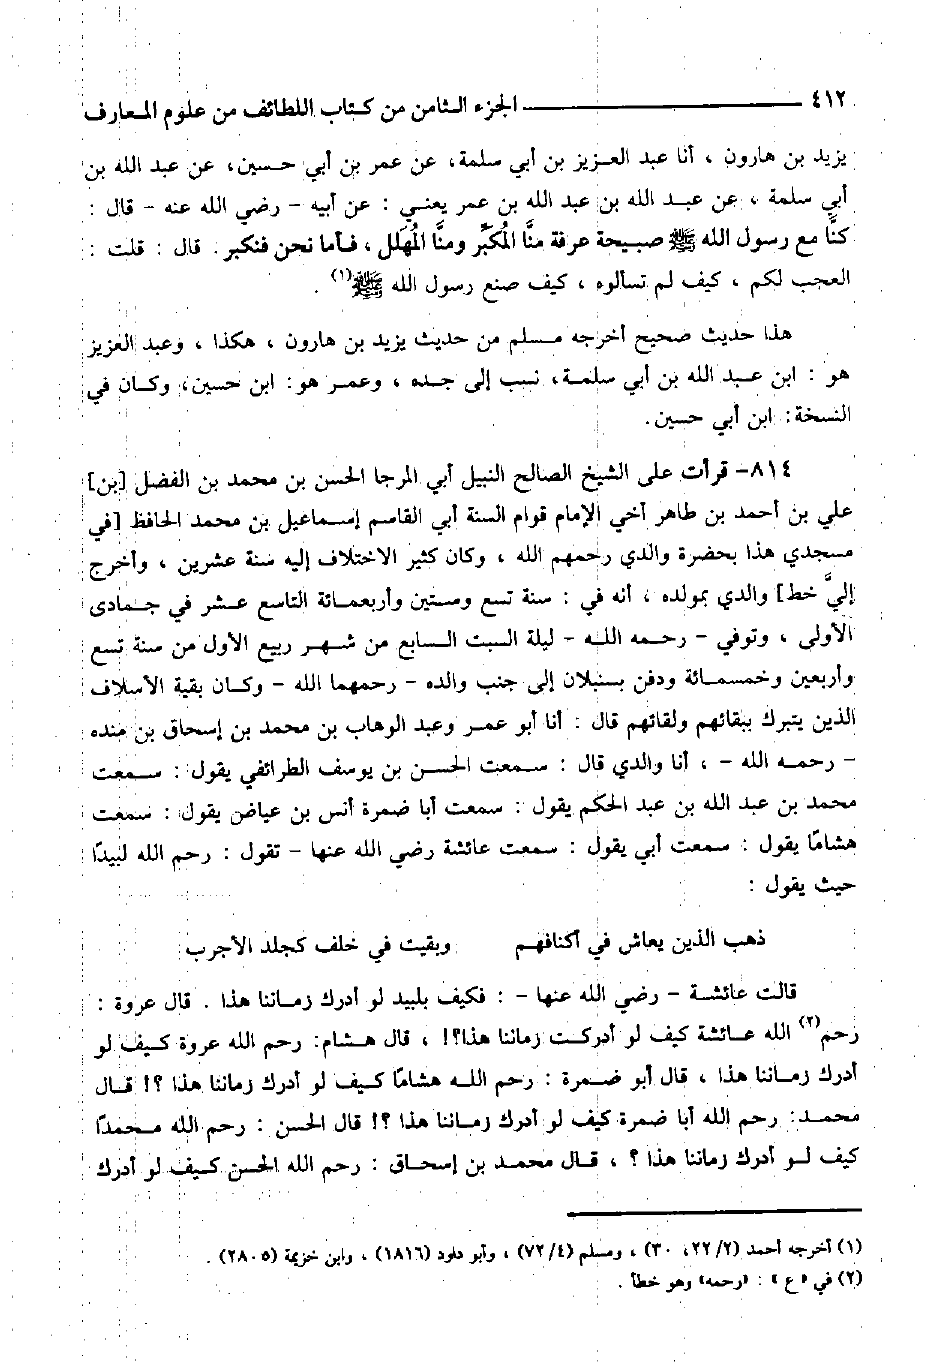 ٤١٢ ــــــــــ الجزء الثامن من كتاب اللطائف من علوم المعارف
يزيد بن هارون ، أنا عبد العزيز بن أبي سلمة، عن عمر بن أبي حسين، عن عبد الله بن
أبي سلمة ، عن عبد الله بن عبد الله بن عمر يعني : عن أبيه – رضي الله عنه – قال :
كنَّا مع رسول الله ﷺ صبيحة عرفة منَّا المُكَبِّر ومنَّا المُهَلل ، فأما نحن فنكبر . قال : قلت :
العجب لكم ، كيف لم تسألوه ، كيف صنع رسول الله ﷺ(١) .
هذا حديث صحيح أخرجه مسلم من حديث يزيد بن هارون ، هكذا ، وعبد العزيز
هو : ابن عبد الله بن أبي سلمة، نسب إلى جده ، وعمر هو: ابن حسين، وكان في
النسخة: ابن أبي حسين.
٨١٤– قرأت على الشيخ الصالح النبيل أبي المرجا الحسن بن محمد بن الفضل [بن]
علي بن أحمد بن طاهر أخي الإمام قوام السنة أبي القاسم إسماعيل بن محمد الحافظ [في
مسجدي هذا بحضرة والدي رحمهم الله ، وكان كثير الاختلاف إليه سنة عشرين ، وأخرج
إليَّ خط] والدي بمولده ، أنه في : سنة تسع وستين وأربعمائة التاسع عشر في جمادى
الأولى ، وتوفي – رحمه الله – ليلة السبت السابع من شهر ربيع الأول من سنة تسع
وأربعين وخمسمائة ودفن بسنبلان إلى جنب والده – رحمهما الله – وكان بقية الأسلاف
الذين يتبرك ببقائهم ولقائهم قال : أنا أبو عمر وعبد الوهاب بن محمد بن إسحاق بن منده
– رحمه الله – ، أنا والدي قال : سمعت الحسن بن يوسف الطرائفي يقول : سمعت
محمد بن عبد الله بن عبد الحكم يقول : سمعت أبا ضمرة أنس بن عياض يقول : سمعت
هشامًا يقول : سمعت أبي يقول : سمعت عائشة رضي الله عنها – تقول : رحم الله لبيدًا
حيث يقول :
ذهب الذين يعاش في أكنافهم وبقيت في خلف كجلد الأجرب
قالت عائشة – رضي الله عنها – : فكيف بلبيد لو أدرك زماننا هذا . قال عروة :
رحم(٢) الله عائشة كيف لو أدركت زماننا هذا؟! ، قال هشام: رحم الله عروة كيف لو
أدرك زماننا هذا ، قال أبو ضمرة : رحم الله هشامًا كيف لو أدرك زماننا هذا ؟! قال
محمد: رحم الله أبا ضمرة كيف لو أدرك زماننا هذا ؟! قال الحسن : رحم الله محمدًا
كيف لو أدرك زماننا هذا ؟ ، قال محمد بن إسحاق : رحم الله الحسن كيف لو أدرك
(١) أخرجه أحمد (٢٢/٢، ٣٠) ، ومسلم (٧٢/٤) ، وأبو داود (١٨١٦) ، وابن خزيمة (٢٨٠٥) .
(٢) في «ع» : «رحمه» وهو خطأ .